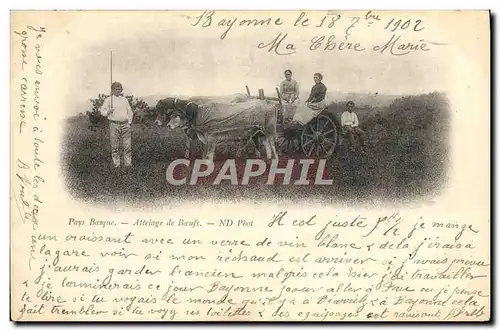 Bayonne le 18 7bre 1902
Ma Chère Marie
je vous envoi à toute les deux une
grosse caresse
CPARAMA.com
Pays Basque. - Attelage de Bœufs. - ND Phot
Il est juste 5h je mange
un croissant avec un verre de vin blanc & de la j'irais a
la gare voir si mon réchaud est arriver si j'avais preveu
j'aurais garder l'ancien malgrès cela hier j'ai travailler
je terminerais ce jour Bayonne pour aller à Pau ou je pense
te lire si tu voyais le monde qu'il y a à Biarritz & Bayonne cela
fait trembler si tu voyais ses toilettes & des gens